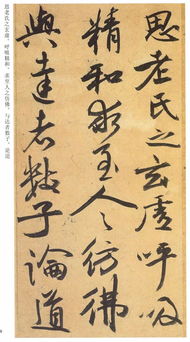 思老氏之玄虚呼吸
精和求至人之仿佛
與達者數子論道
思老氏之玄虚。呼吸精和,求至人之仿佛。与达者数子,论道